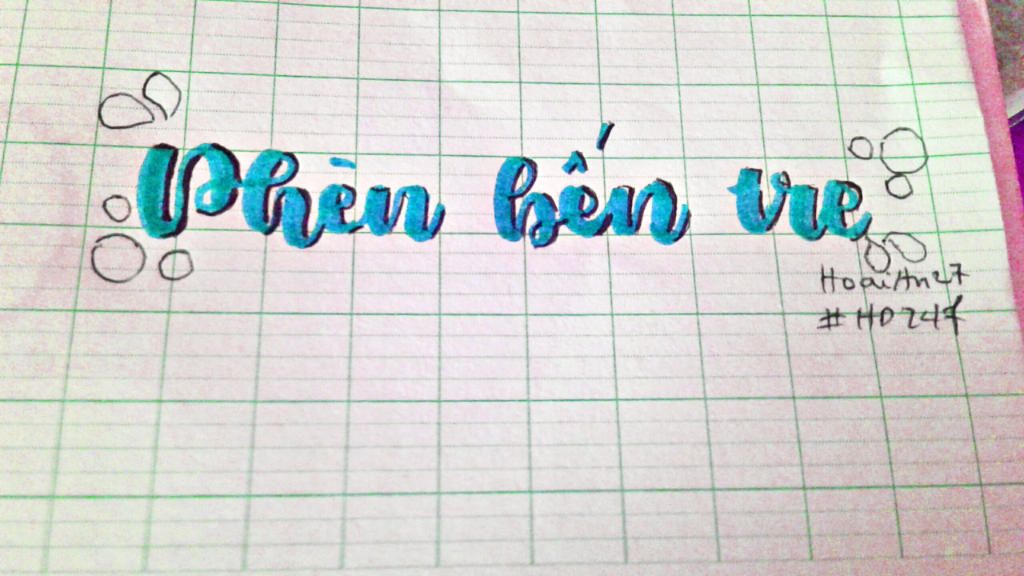 Phèn bến tre
HoaiAn27
#HD247